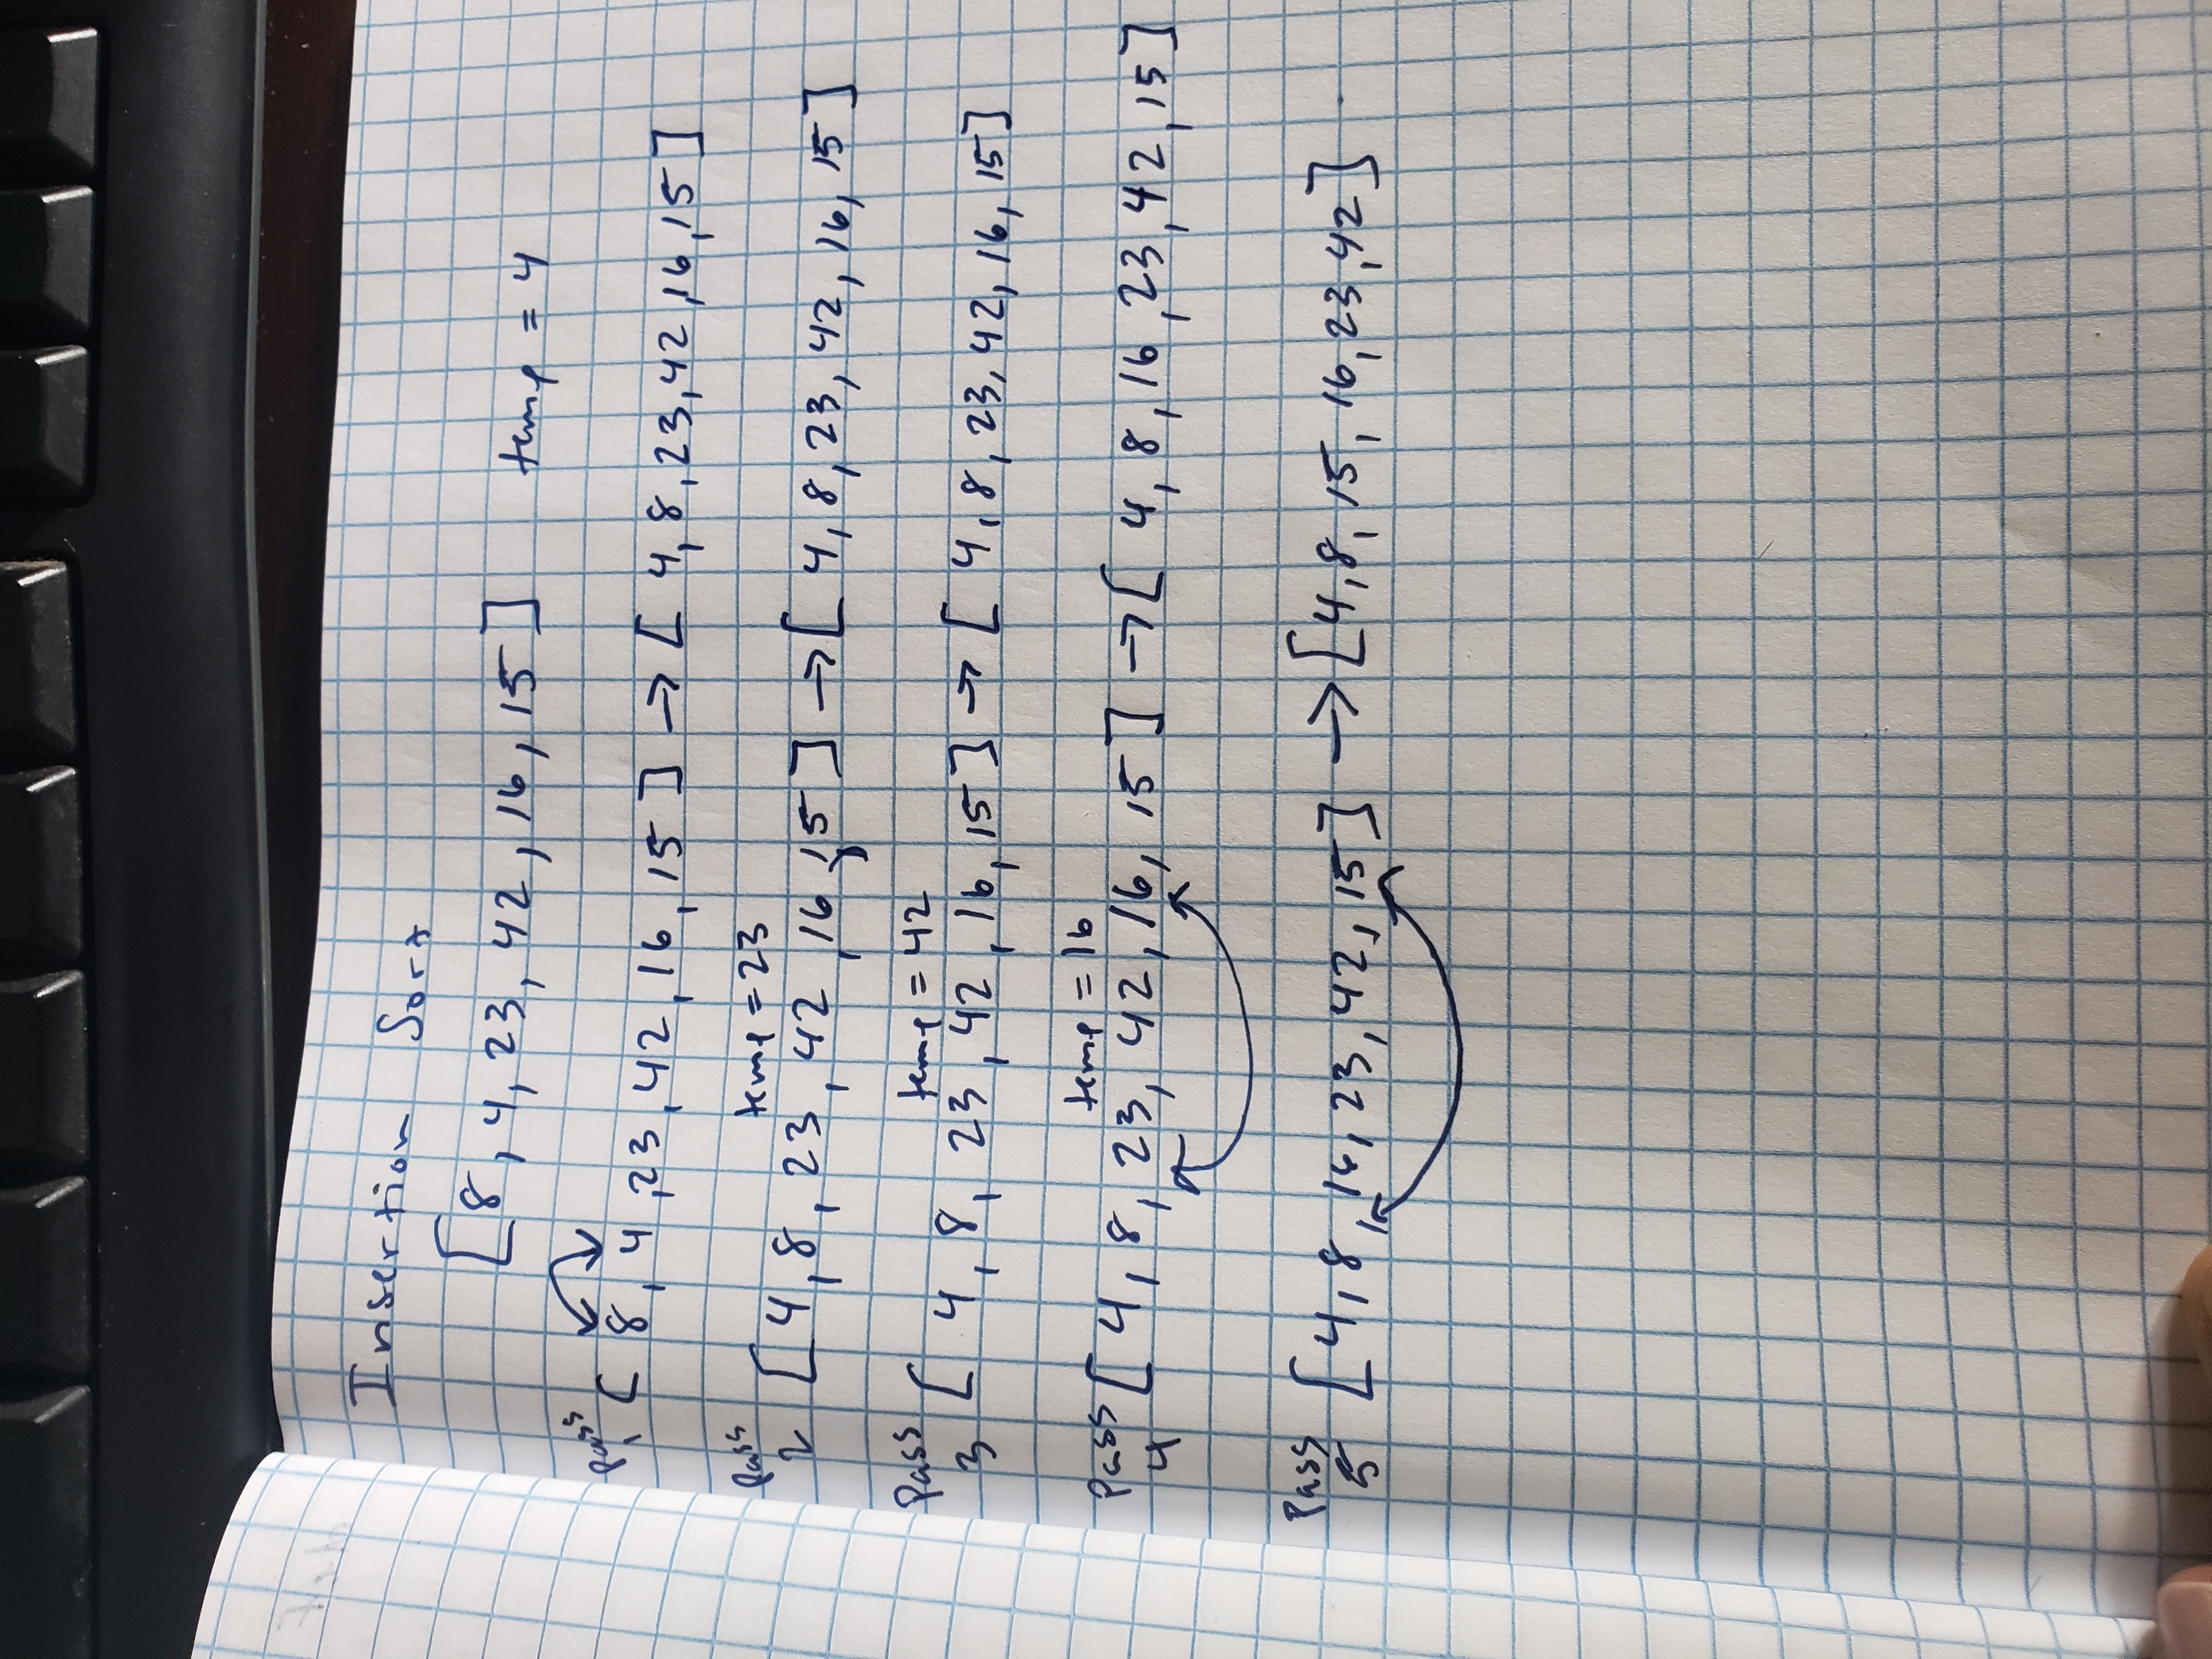 Insertion Sort
[8, 4, 23, 42, 16, 15] temp = 4
Pass 1 [ 8, 4, 23, 42, 16, 15 ] → [ 4, 8, 23, 42, 16, 15 ]
temp = 23
Pass 2 [ 4, 8, 23, 42, 16, 15 ] → [ 4, 8, 23, 42, 16, 15 ]
temp = 42
Pass 3 [ 4, 8, 23, 42, 16, 15 ] → [ 4, 8, 23, 42, 16, 15 ]
temp = 16
Pass 4 [ 4, 8, 23, 42, 16, 15 ] → [ 4, 8, 16, 23, 42, 15 ]
Pass 5 [ 4, 8, 16, 23, 42, 15 ] → [4, 8, 15, 16, 23, 42 ]